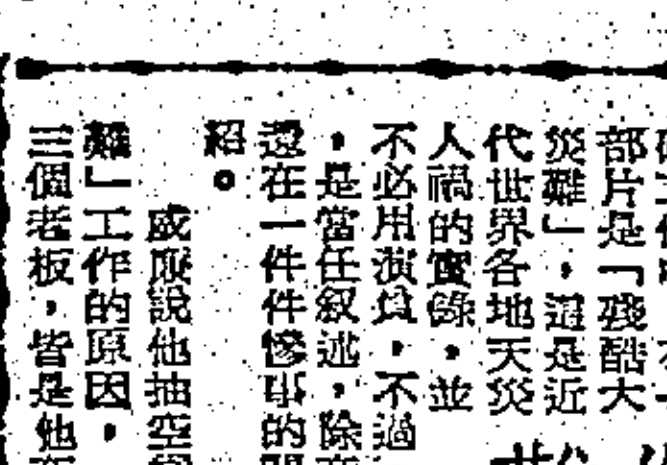 部片是「殘酷大
災難」，這是近
代世界各地天災
人禍的實錄，並
不必用演員，不過
，是當任敘述，除
還在一件件慘事的
紹。
成順說他抽空
難」工作的原因，
三個老板，皆是他